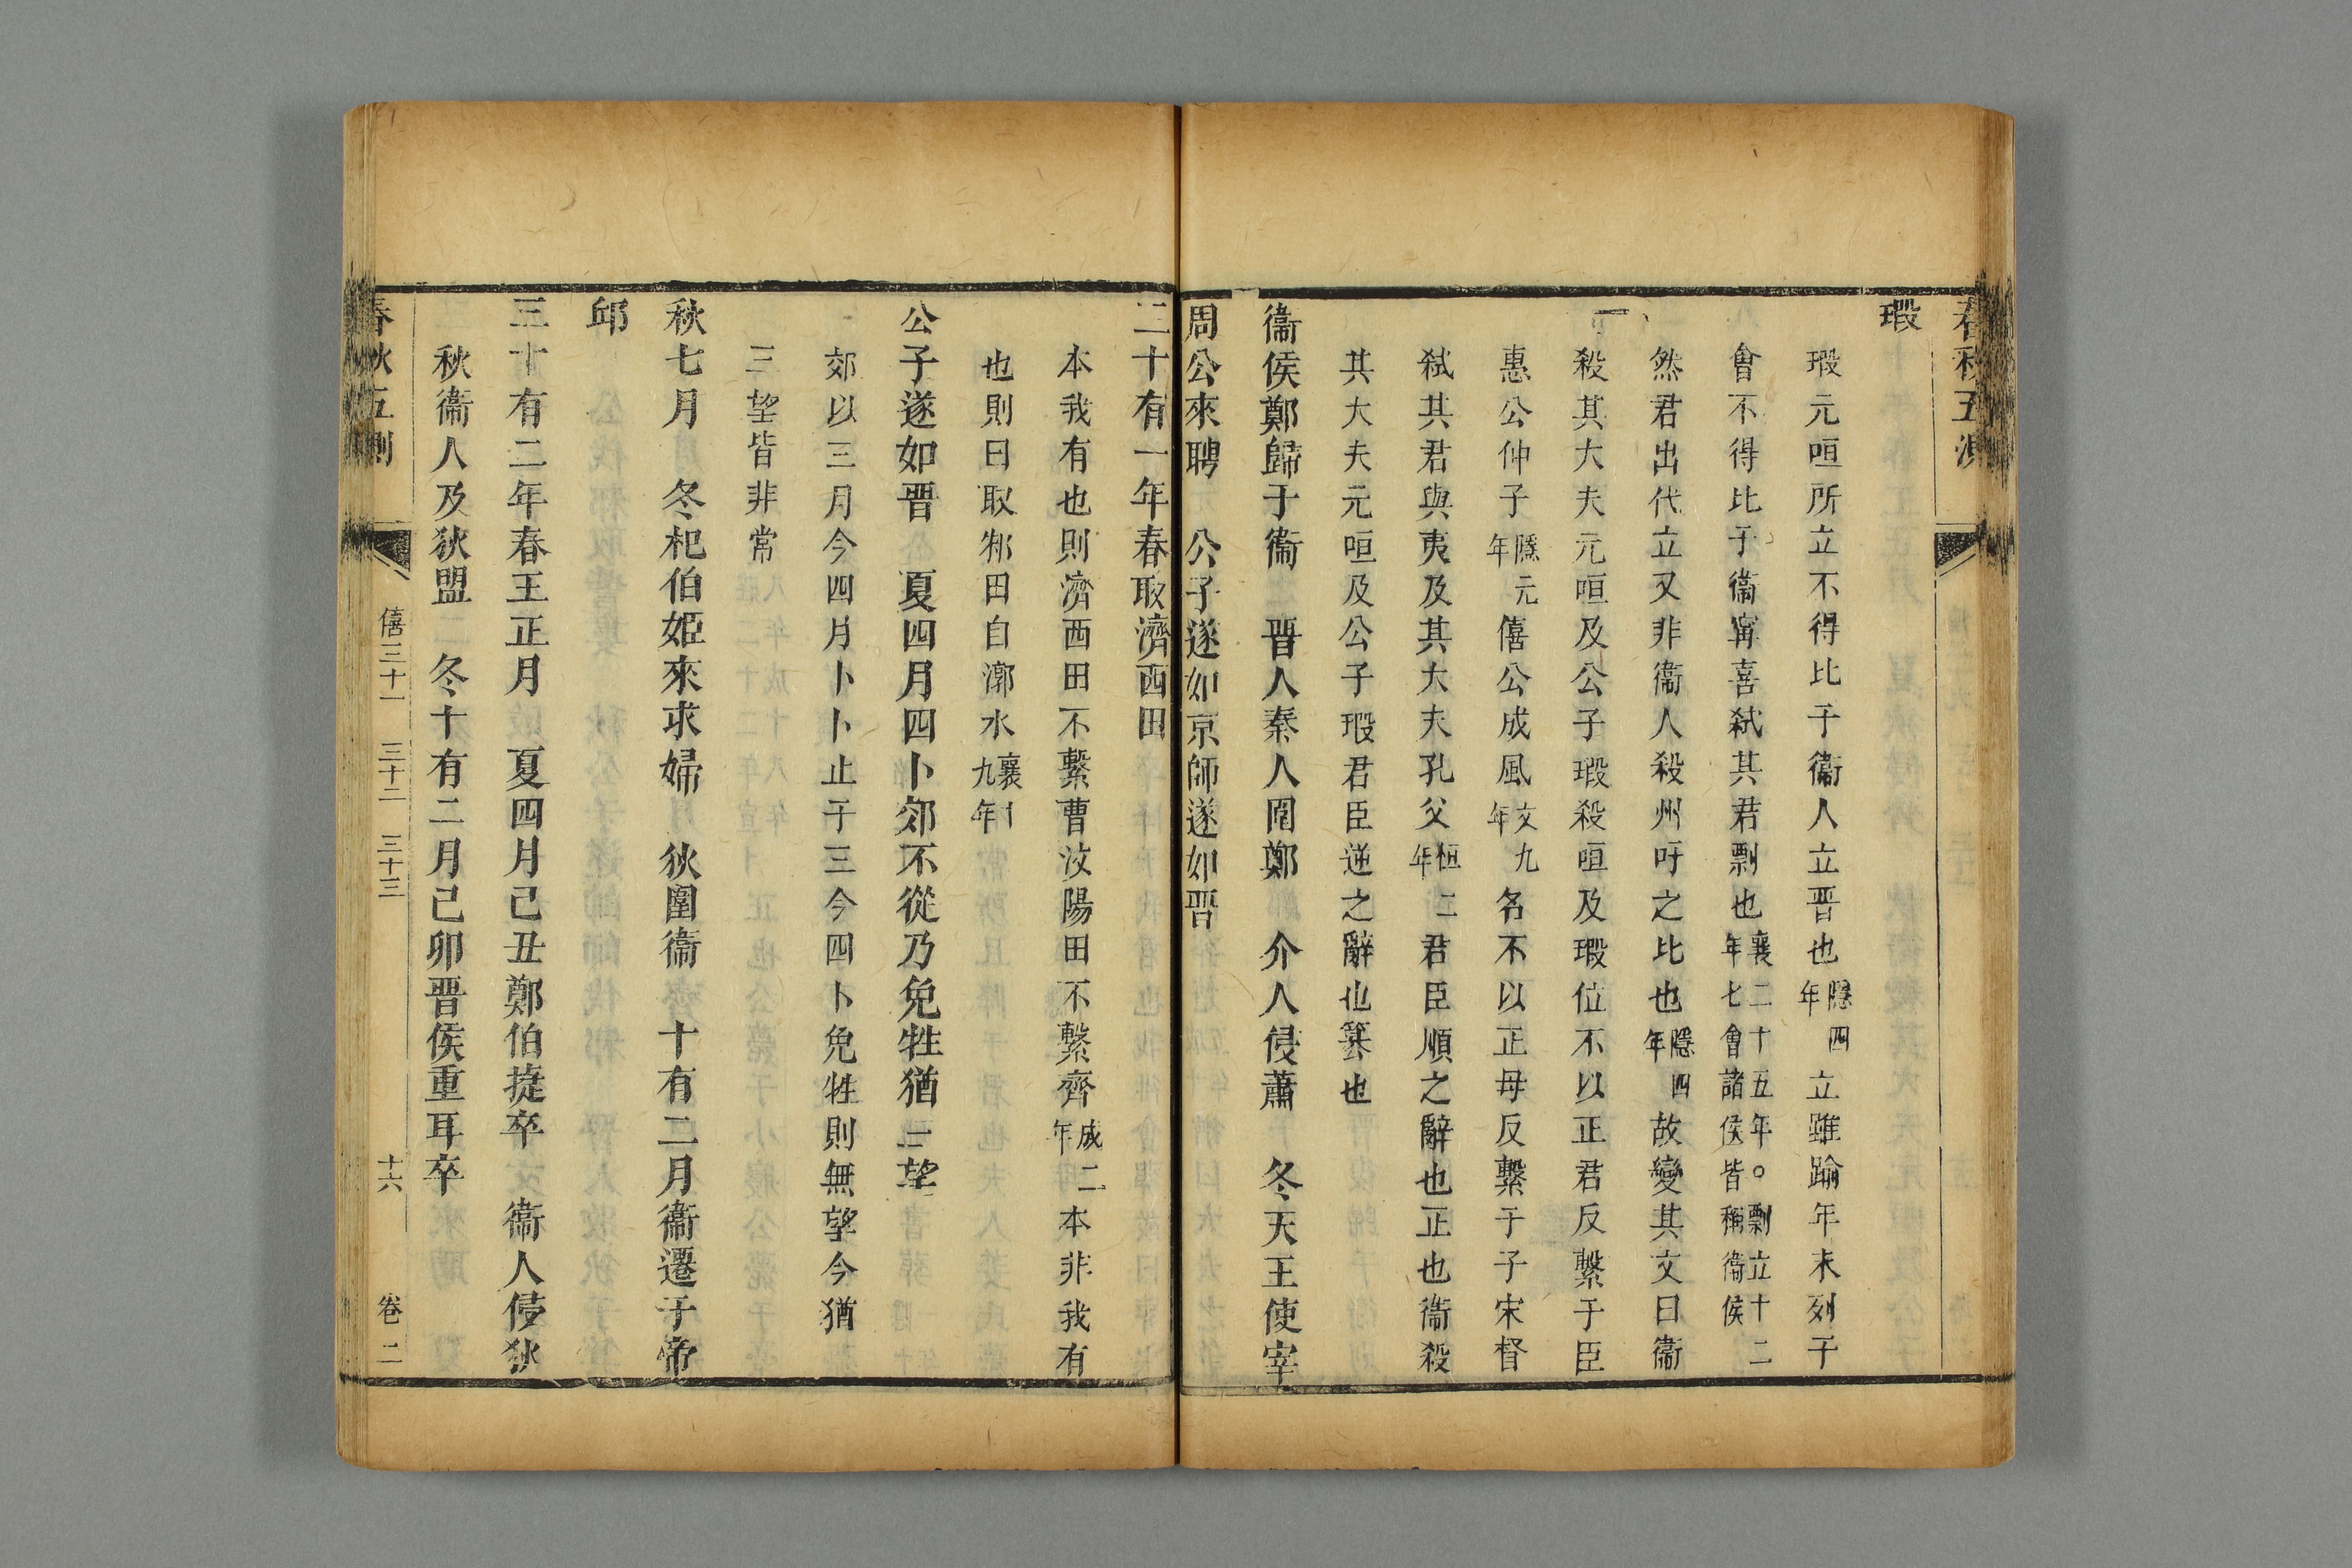 春秋五測
瑕
瑕元咺所立不得比于衞人立晋也隱四年立雖踰年未列于
會不得比于衞甯喜弑其君剽也襄二十五年○剽立十二年七會諸侯皆稱衞侯
然君出代立又非衞人殺州吁之比也隱四年故變其文曰衞
殺其大夫元咺及公子瑕殺咺及瑕位不以正君反繫于臣
惠公仲子隱元年僖公成風文九年名不以正母反繫于子宋督
弑其君與夷及其大夫孔父桓二年君臣順之辭也正也衞殺
其大夫元咺及公子瑕君臣逆之辭也篡也
衞侯鄭歸于衞　晋人秦人圍鄭　介人侵蕭　冬天王使宰
周公來聘　公子遂如京師遂如晋
三十有一年春取濟西田
本我有也則濟西田不繫曹汶陽田不繫齊成二年本非我有
也則曰取邾田自漷水襄十九年
公子遂如晋　夏四月四卜郊不從乃免牲猶三望
郊以三月今四月卜卜止于三今四卜免牲則無望今猶
三望皆非常
秋七月　冬杞伯姬來求婦　狄圍衞　十有二月衞遷于帝
邱
三十有二年春王正月　夏四月己丑鄭伯捷卒　衞人侵狄
秋衞人及狄盟　冬十有二月己卯晋侯重耳卒
春秋五測　僖三十一　三十二　三十三　十六　卷二